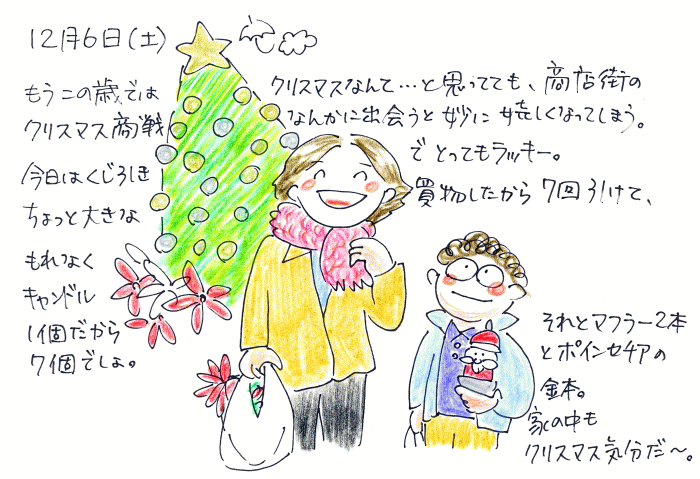 12月6日(土)
もうこの歳では
クリスマス商戦
今日はくじろしき
ちょっと大きな
もれつよく
キャンドル
1個だから
7個でしょ。
クリスマスなんて…と思ってても、商店街の
なんかに出会うと妙に嬉しくなってしまう。
でとってもラッキー。
買物したから7回引けて、
それとマフラー2本
とポインセチアの
金本。
家の中も
クリスマス気分だ〜。